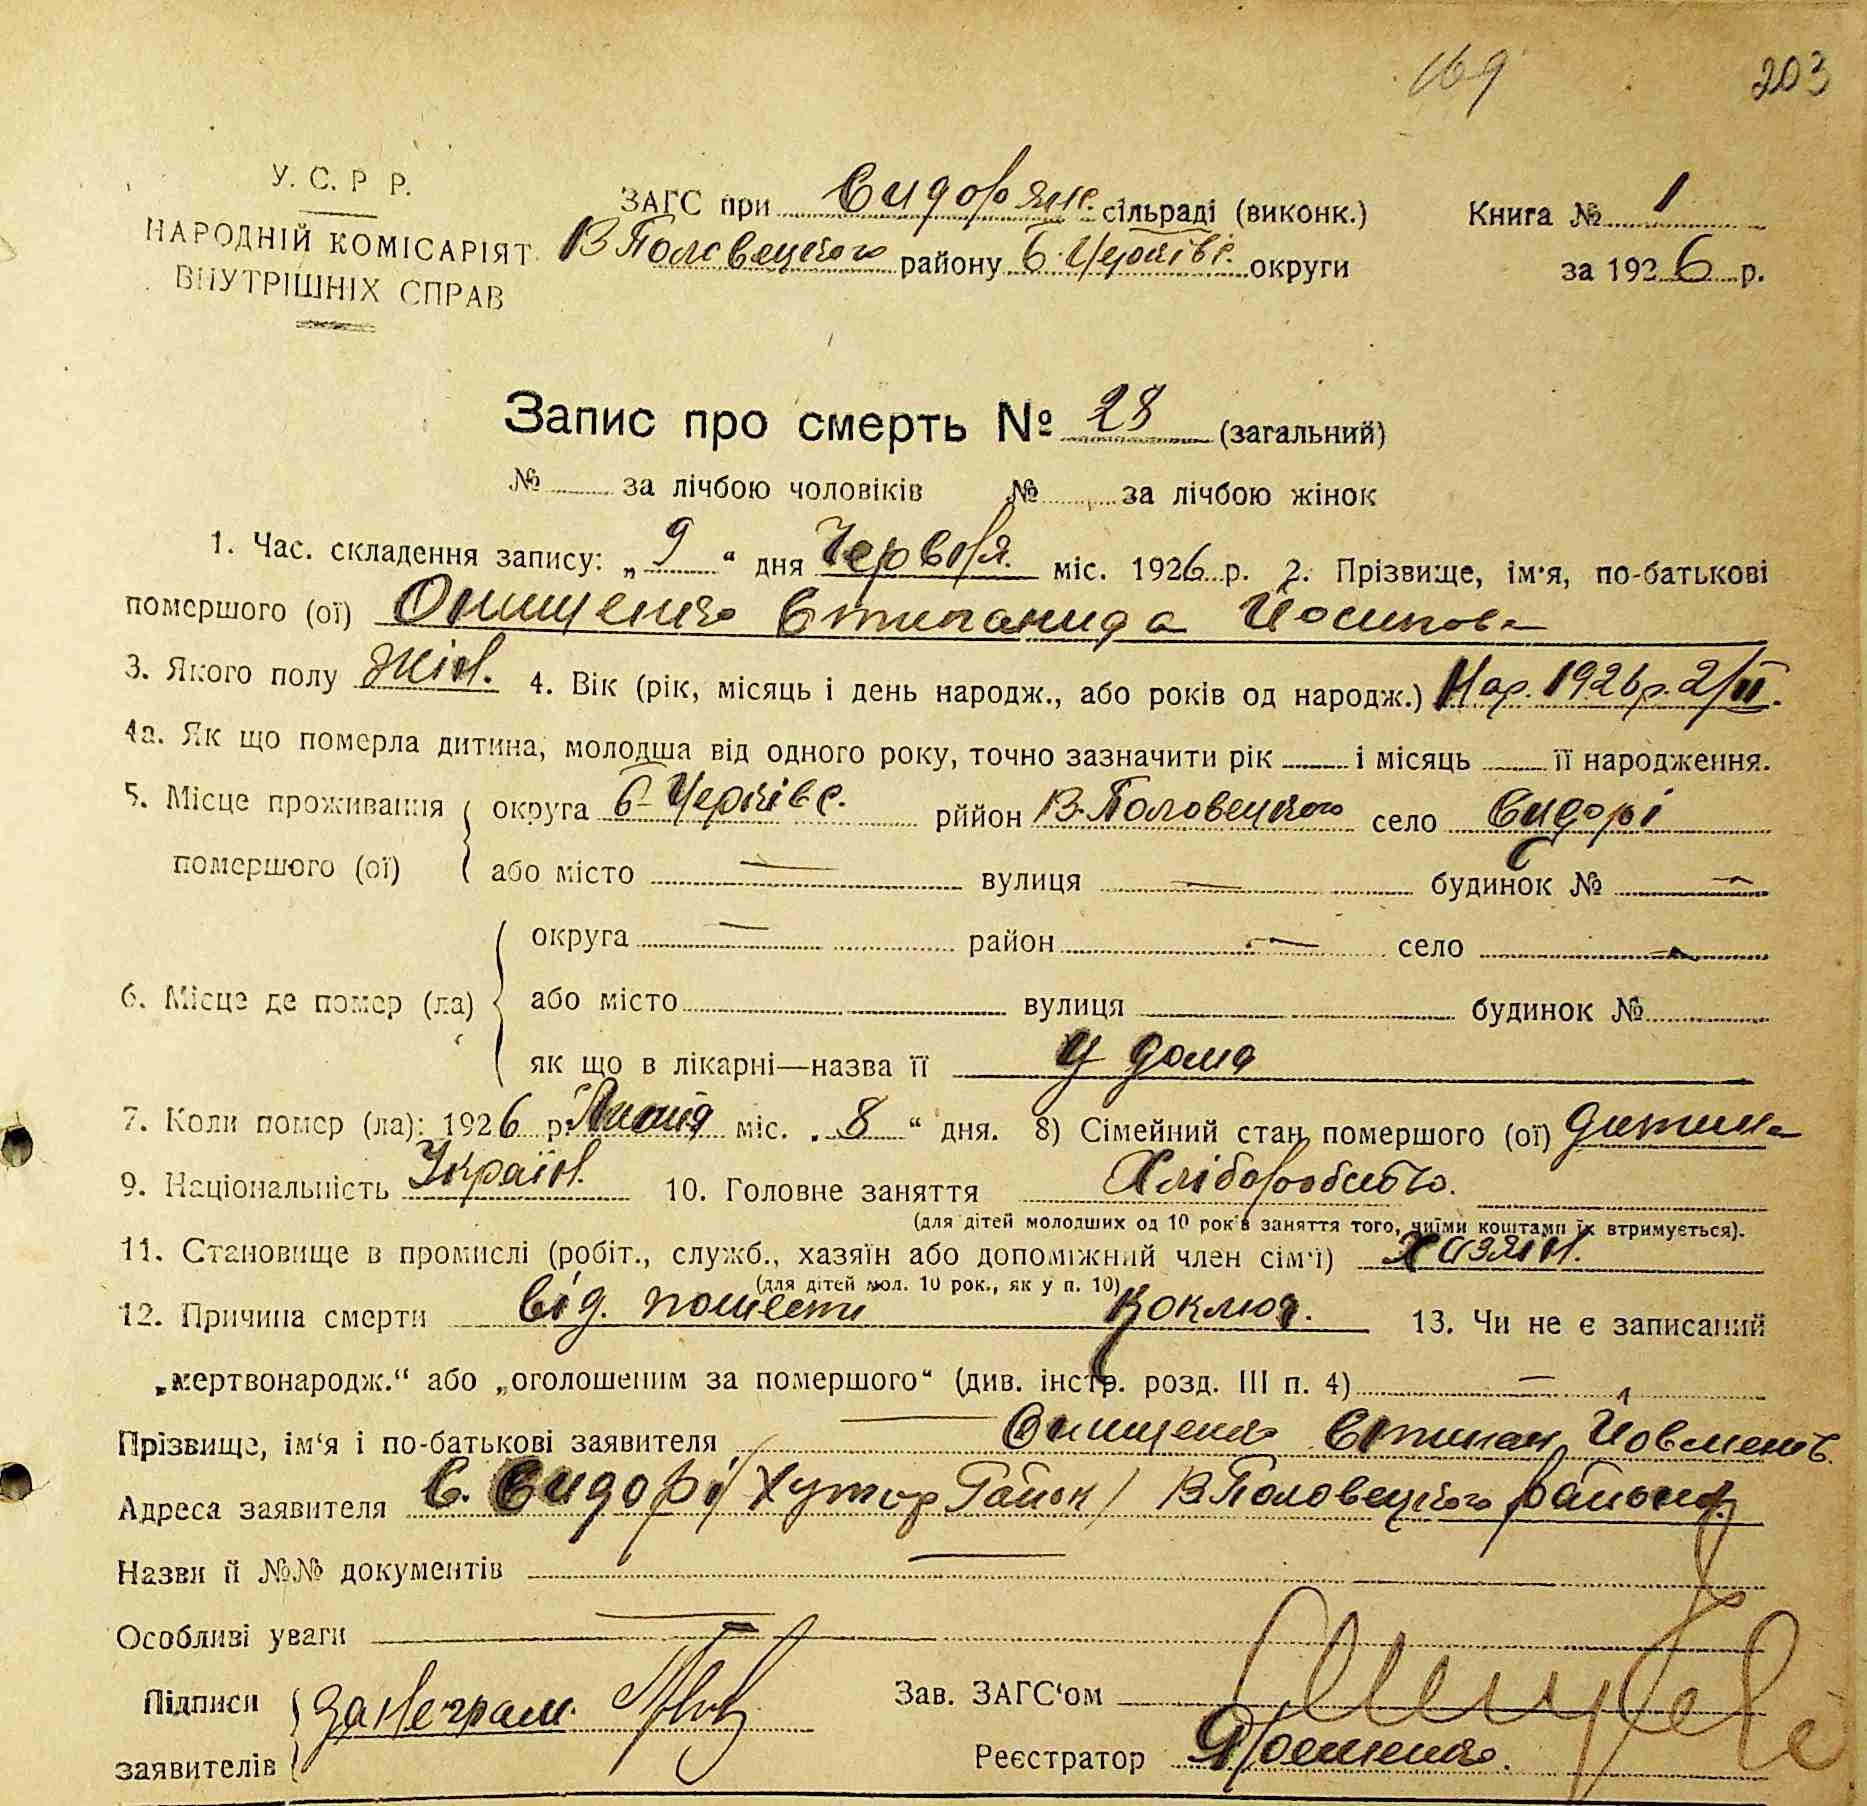 169 203
У. С. Р Р.
НАРОДНІЙ КОМІСАРІЯТ
ВНУТРІШНІХ СПРАВ
ЗАГС при Сидорянс. сільраді (виконк.) Книга № 1
В Половецкого району Б-Церківс. округи за 1926 р.
Запис про смерть № 28 (загальний)
№ за лічбою чоловіків № за лічбою жінок
1. Час. складення запису: „9“ дня Червня. міс. 1926 р. 2. Прізвище, ім'я, по-батькові
помершого (ої) Онищенко Стипанида Йосипова
3. Якого полу жін. 4. Вік (рік, місяць і день народж., або років од народж.) Нар. 1926 р. 2/II.
4а. Як що померла дитина, молодша від одного року, точно зазначити рік і місяць її народження.
5. Місце проживання округа Б-Церківс. рййон В-Половецкого село Сидорі
помершого (ої) або місто — вулиця — будинок № —
округа — район — село —
6. Місце де помер (ла) або місто вулиця будинок №
як що в лікарні—назва її у дома
7. Коли помер (ла): 1926 р. міс. „8“ дня. 8) Сімейний стан помершого (ої) дитина
9. Національність Україн. 10. Головне заняття Хліборобство.
(для дітей молодших од 10 років заняття того, чиїми коштами їх втримується).
11. Становище в промислі (робіт., служб., хазяїн або допоміжний член сім'ї) хазяїн.
(для дітей мол. 10 рок., як у п. 10)
12. Причина смерти Від. пошести Коклюш. 13. Чи не є записаний
„мертвонародж.“ або „оголошеним за помершого“ (див. інстр. розд. III п. 4) —
Прізвище, ім'я і по-батькові заявителя Онищенко Стипан
Адреса заявителя С. Сидорі /Хутор / В Половецкого району
Назви й №№ документів —
Особливі уваги —
Підписи за неграм. Зав. ЗАГС'ом
заявителів Реєстратор